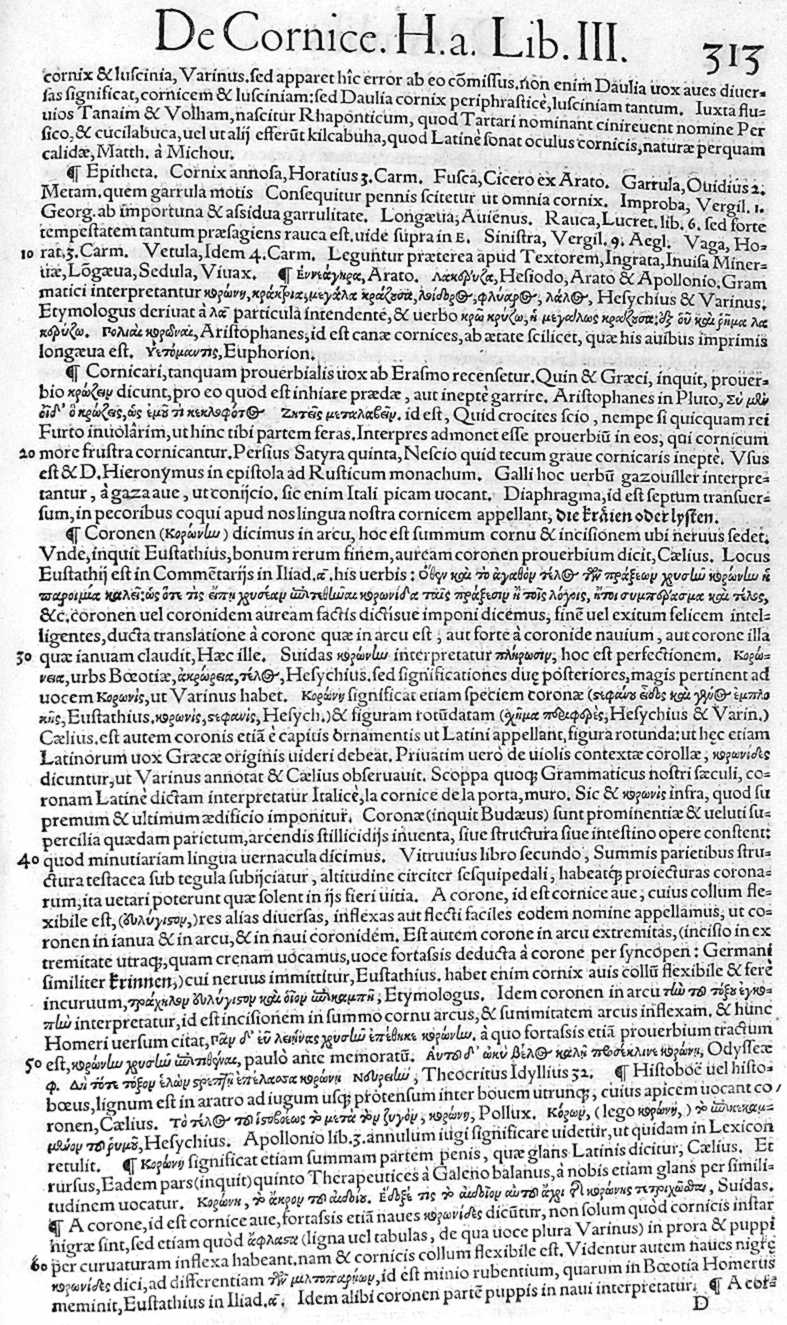 De Cornice. H.a. Lib. III. 313
cornix & luscinia, Varinus. sed apparet hîc error ab eo cõmissus. non enim Daulia uox aues diuer-
sas significat, cornicem & lusciniam: sed Daulia cornix periphrasticè, lusciniam tantum. Iuxta flu-
uios Tanaim & Volham, nascitur Rhaponticum, quod Tartari nominant cinireuent nomine Per
sico, & cucilabuca, uel ut alij efferũt kilcabuha, quod Latinè sonat oculus cornicis, naturæ perquam
calidæ, Matth. à Michou.
¶ Epitheta. Cornix annosa, Horatius 3. Carm. Fusca, Cicero ex Arato. Garrula, Ouidius 2.
Metam. quem garrula motis Consequitur pennis scitetur ut omnia cornix. Improba, Vergil. 1.
Georg. ab importuna & assidua garrulitate. Longæua, Auienus. Rauca, Lucret. lib. 6. sed forte
tempestatem tantum præsagiens rauca est. uide supra in E. Sinistra, Vergil. 9. Aegl. Vaga, Ho-
10 rat. 3. Carm. Vetula, Idem 4. Carm. Leguntur præterea apud Textorem, Ingrata, Inuisa Miner-
uæ, Lõgæua, Sedula, Viuax. ¶ Ἐννεάγηρα, Arato. Λακέρυζα, Hesiodo, Arato & Apollonio. Gram
matici interpretantur κορώνη, κράκτρια, μεγάλα κράζουσα, λοίδορος, φλύαρος, λάλος, Hesychius & Varinus.
Etymologus deriuat à λα particula intendente, & uerbo κρῶ κρύζω, ἡ μεγάλως κράζουσα: ἐξ οὗ καὶ ῥῆμα λα
κερύζω. Πολιαὶ κορῶναι, Aristophanes, id est canæ cornices, ab ætate scilicet, quæ his auibus imprimis
longæua est. Ὑετόμαντις, Euphorion.
¶ Cornicari, tanquam prouerbialis uox ab Erasmo recensetur. Quin & Græci, inquit, prouer-
bio κρώζειν dicunt, pro eo quod est inhiare prædæ, aut ineptè garrire. Aristophanes in Pluto, Σὺ μὲν
οἶδ' ὃ κρώζεις, ὡς ἐμοῦ τι κεκλοφότος Ζητεῖς μεταλαβεῖν. id est, Quid crocites scio, nempe si quicquam rei
Furto inuolârim, ut hinc tibi partem feras. Interpres admonet esse prouerbiũ in eos, qui cornicum
20 more frustra cornicantur. Persius Satyra quinta, Nescio quid tecum graue cornicaris ineptè. Vsus
est & D. Hieronymus in epistola ad Rusticum monachum. Galli hoc uerbũ gazouiller interpre-
tantur, à gaza aue, ut conijcio. sic enim Itali picam uocant. Diaphragma, id est septum transuer-
sum, in pecoribus coqui apud nos lingua nostra cornicem appellant, die kräien oder lysten.
¶ Coronen (Κορώνην) dicimus in arcu, hoc est summum cornu & incisionem ubi neruus sedet.
Vnde, inquit Eustathius, bonum rerum finem, auream coronen prouerbium dicit, Cælius. Locus
Eustathij est in Commẽtarijs in Iliad. α. his uerbis: Ὅθεν καὶ τὸ ἀγαθὸν τέλος τῶν πράξεων χρυσῆν κορώνην ἡ
παροιμία καλεῖ: ὡς ὅτε τις εἴπῃ χρυσέαν ἐπιτεθῆναι κορωνίδα ταῖς πράξεσιν ἢ τοῖς λόγοις, ἤτοι συμπέρασμα καὶ τέλος,
&c. coronen uel coronidem auream factis dictisue imponi dicemus, finẽ uel exitum felicem intel-
ligentes, ducta translatione à corone quæ in arcu est, aut forte à coronide nauium, aut corone illa
30 quæ ianuam claudit, Hæc ille. Suidas κορώνην interpretatur πλήρωσιν, hoc est perfectionem. Κορώ-
νεια, urbs Bœotiæ, ἀκρώρεια, τέλος, Hesychius. sed significationes duę posteriores, magis pertinent ad
uocem Κορωνὶς, ut Varinus habet. Κορώνη significat etiam speciem coronæ (στεφάνου εἶδος καὶ γένος ἐμπλο
κῆς, Eustathius. κορωνὶς, στεφανὶς, Hesych.) & figuram rotũdatam (σχῆμα περιφερὲς, Hesychius & Varin.)
Cælius. est autem coronis etiã è capitis ornamentis ut Latini appellant, figura rotunda: ut hęc etiam
Latinorum uox Græcæ originis uideri debeat. Priuatim uerò de uiolis contextæ corollæ, κορωνίδες
dicuntur, ut Varinus annotat & Cælius obseruauit. Scoppa quoq; Grammaticus nostri sæculi, co-
ronam Latinè dictam interpretatur Italicè, la cornice de la porta, muro. Sic & κορωνὶς infra, quod su
premum & ultimum ædificio imponitur. Coronæ (inquit Budæus) sunt prominentiæ & ueluti su-
percilia quædam parietum, arcendis stillicidijs inuenta, siue structura siue intestino opere constent:
40 quod minutiariam lingua uernacula dicimus. Vitruuius libro secundo, Summis parietibus stru-
ctura testacea sub tegula subijciatur, altitudine circiter sesquipedali, habeatq; proiecturas corona-
rum, ita uetari poterunt quæ solent in ijs fieri uitia. A corone, id est cornice aue, cuius collum fle-
xibile est, (εὐλύγιστον,) res alias diuersas, inflexas aut flecti faciles eodem nomine appellamus, ut co-
ronen in ianua & in arcu, & in naui coronidem. Est autem corone in arcu extremitas, (incisio in ex
tremitate utraq;, quam crenam uocamus, uoce fortassis deducta à corone per syncopen: Germani
similiter krinnen,) cui neruus immittitur, Eustathius. habet enim cornix auis collũ flexibile & ferè
incuruum, τράχηλον εὐλύγιστον καὶ οἷον ἐπικαμπῆ, Etymologus. Idem coronen in arcu τὴν τοῦ τόξου ἐγκο-
πὴν interpretatur, id est incisionem in summo cornu arcus, & summitatem arcus inflexam. & hunc
Homeri uersum citat, πᾶν δ' εὖ λειήνας χρυσῆν ἐπέθηκε κορώνην. à quo fortassis etiã prouerbium tractum
50 est, κορώνην χρυσῆν ἐπιτιθέναι, paulò ante memoratũ. Αὐτοῦ δ' ὠκὺ βέλος καλῇ προσέκλινε κορώνῃ, Odysseæ
φ. Δὴ τότε τόξον ἑλὼν στρεπτῇ ἐπέλασσα κορώνῃ Νευρειὴν, Theocritus Idyllius 32. ¶ Histoboẽ uel histo-
bœus, lignum est in aratro ad iugum usq; protensum inter bouem utrunq;, cuius apicem uocant co
ronen, Cælius. Τὸ τέλος τοῦ ἱστοβοέως τὸ μετὰ τὸν ζυγὸν, κορώνη, Pollux. Κόρων, (lego κορώνη,) τὸ ἐπικεκαμ-
μένον τοῦ ῥυμοῦ, Hesychius. Apollonio lib. 3. annulum iugi significare uidetur, ut quidam in Lexicon
retulit. ¶ Κορώνη significat etiam summam partem penis, quæ glans Latinis dicitur, Cælius. Et
rursus, Eadem pars (inquit) quinto Therapeutices à Galeno balanus, à nobis etiam glans per simili-
tudinem uocatur. Κορώνη, τὸ ἄκρον τοῦ αἰδοίου. ἔδοξέ τις τὸ αἰδοῖον αὐτοῦ ἄχρι τῆς κορώνης τετριχῶσθαι, Suidas.
¶ A corone, id est cornice aue, fortassis etiã naues κορωνίδες dicũtur, non solum quòd cornicis instar
nigræ sint, sed etiam quòd ἄφλαστα (ligna uel tabulas, de qua uoce plura Varinus) in prora & puppi
60 per curuaturam inflexa habeant. nam & cornicis collum flexibile est. Videntur autem naues nigrę
κορωνίδες dici, ad differentiam τῶν μιλτοπαρῄων, id est minio rubentium, quarum in Bœotia Homerus
meminit, Eustathius in Iliad. α. Idem alibi coronen partẽ puppis in naui interpretatur. ¶ A cor-
D